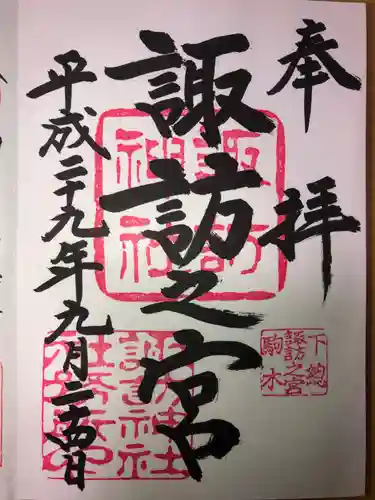 奉拝
諏訪之宮
平成二十九年九月二十四日
諏訪神社
下総
諏訪之宮
駒木
諏訪神社